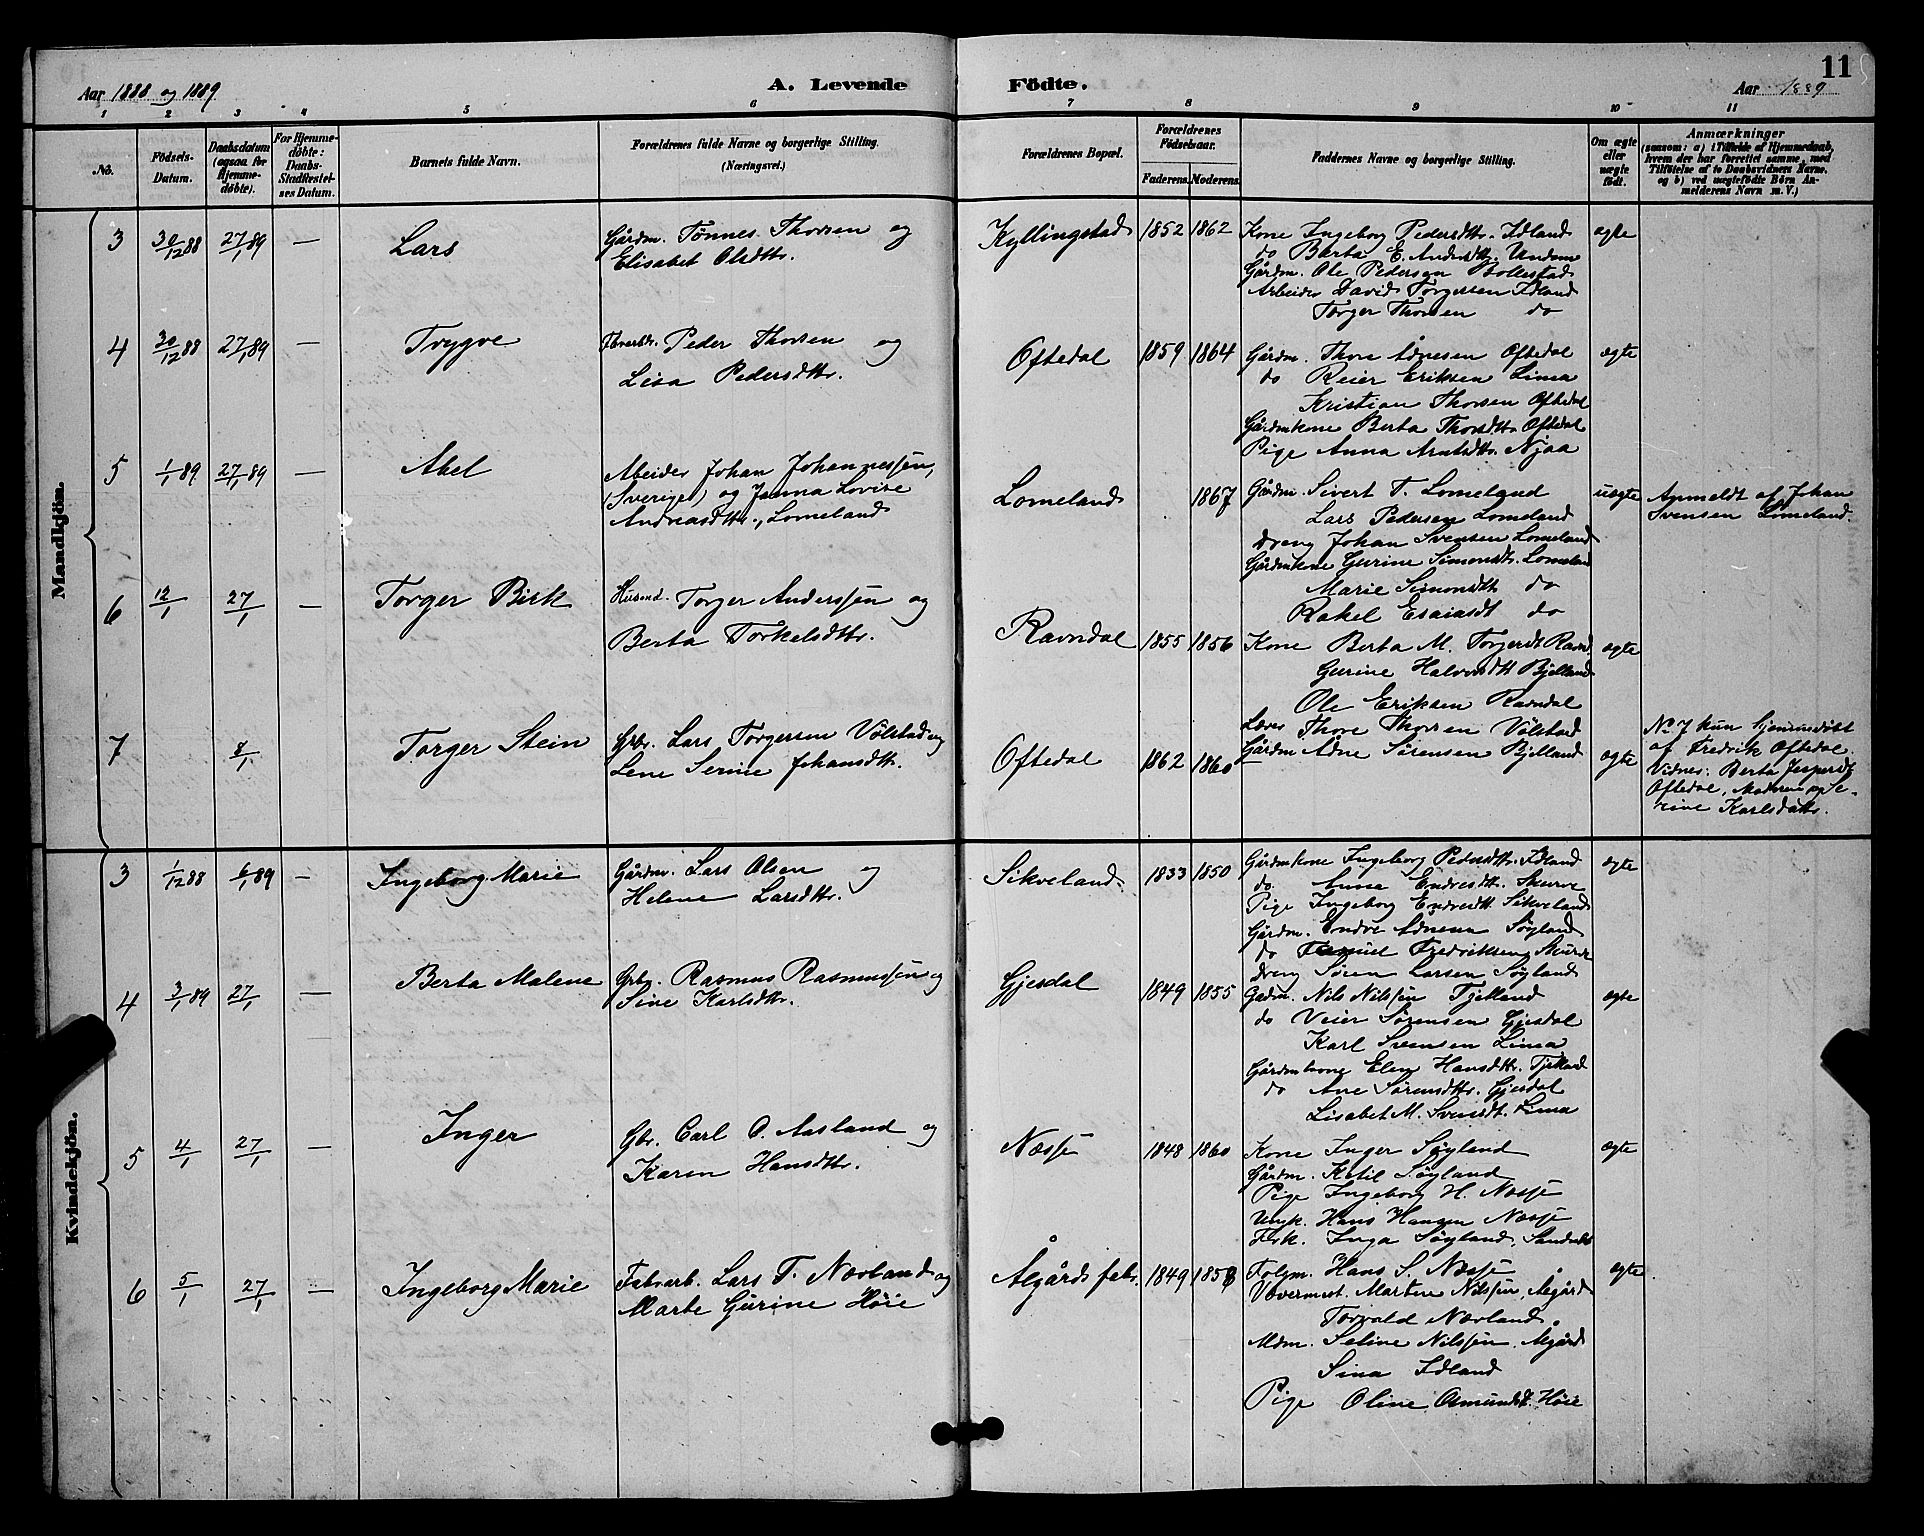 11
Aar 1888 og 1889
A. Levende
Födte.
Aar 1889
1 2 3 4 5 6 7 8 9 10 11
No.
Födsels-Datum.
Daabsdatum (ogsaa for Hjemme-döbte).
For Hjemme-döbte: Daabs-Stadfæstel-ses Datum.
Barnets fulde Navn.
Forældrenes fulde Navne og borgerlige Stilling. (Næringsvei.)
Forældrenes Bopæl.
Forældrenes Födselsaar.
Faderens. Moderens.
Faddernes Navne og borgerlige Stilling.
Om ægte eller uægte födt.
Anmærkninger
(saasom: a) i Tilfælde af Hjemmedaab,
hvem der har forrettet samme, med
Tilföielse af to Daabsvidners Navne.
og b) ved uægtefödte Börn An-
melderens Navn m. V.)
Mandkjön.
3 30/12 88 27/1 89 — Lars
Gårdm. Tönnes Thorsen og
Elisabet Olsdtr.
Kyllingstad 1852 1862
Kone Ingeborg Pedersdtr. Idland
do Berta E. Andersdtr.
Gårdm. Ole Pedersen Bollestad
Arbeider David Torgersen Idland
Torger Thorsen do
ægte
4 30/12 88 27/1 89 — Trygve
Peder Thorsen og
Lisa Pedersdtr.
Oftedal 1859 1864
Gårdm. Thore Ådnesen Oftedal
do Reier Eriksen Lima
Kristian Thorsen Oftedal
Gårdmkone Berta Thorsdtr. Oftedal
Pige Anna Arntsdtr. Njaa
ægte
5 1/1 89 27/1 89 — Abel
Abeider Johan Johannessen,
(Sverige) og Janna Lovise
Andreasdtr., Lomeland
Lomeland 1867
Gårdm. Sivert T. Lomeland
Lars Pedersen Lomeland
dreng Johan Svensen Lomeland
Gårdmkone Gurine Simonsdt. Lomeland
Marie Simonsdt do
Rakel Esaiasdt do
uægte
Anmeldt af Johan
Svensen Lomeland.
6 12/1 27/1 — Torger Birk
Husmd. Torger Anderssen og
Berta Torkelsdtr.
Ravndal 1855 1856
Kone Berta M. Torgersdt Ravnd.
Gurine Halvorsdt Bjelland
Ole Eriksen Ravndal
Lærer Thore Thorsen Völstad
Gårdm Ådne Sörensen Bjelland
ægte
7 8/1 Torger Stein
Grbr. Lars Torgersen Völstad og
Lene Serine Johansdtr.
Oftedal 1862 1860
ægte
No 7 kun hjemmedöbt
af Fredrik Oftedal
Vidner: Berta Jespersdt
Oftedal, Moderen og Se-
rine Karlsdatter.
Kvindekjön.
3 1/12 88 6/1 89 — Ingeborg Marie
Gårdm. Lars Olsen og
Helene Larsdtr.
Sikveland 1833 1850
Gårdmkone Ingeborg Pedersdtr. Idland
do. Anna Endresdtr. Skurve
Pige Ingeborg Endresdtr. Sikveland
Gårdm. Endre Ådnesen Söyland
do Fredriksen Skurve
dreng Sören Larsen Söyland
ægte
4 3/1 89 27/1 — Berta Malene
Grbr. Rasmus Rasmussen og
Sine Karlsdtr.
Gjesdal 1849 1855
Gadm. Nils Nilssen Tjelland
do Veier Sörensen Gjesdal
Karl Svensen Lima
Gårdmkone Elen Hansdtr. Tjelland
do Ane Sörensdtr. Gjesdal
Lisabet M. Svensdt. Lima
ægte
5 4/1 27/1 — Inger
Gbr. Carl O. Aasland og
Karen Hansdtr.
Næsse 1848 1860
Kone Inger Söyland
Gårdm. Ketil Söyland
Pige Ingeborg H. Næsse
Ungk. Hans Hansen Næsse
Frk. Inga Söyland, Sandnes
ægte
6 5/1 27/1 — Ingeborg Marie
Fabrarb. Lars T. Nærland og
Marte Gurine Höie
Ålgårds fabr. 1849 1858
Folgm. Hans S. Næsse
Vævermest. Martin Nilssen, Ålgård
Torvald Nærland.
Mdm. Seline Nilssen, Ålgård
Sina Idland
Pige Oline Osmundsdt. Höie
ægte